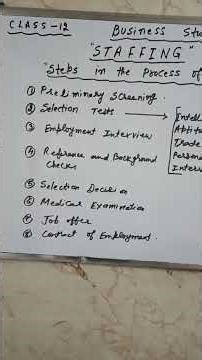 CLASS-12
Business Stu
"STAFFING"
"Steps in the Process of
① Preliminary Screening.
② Selection Tests → Intell
Aptit
③ Employment Interview Trade
Persona
④ Reference and Background Inter
Checks
⑤ Selection Decision
⑥ Medical Examination
⑦ Job offer
⑧ Contract of Employment.